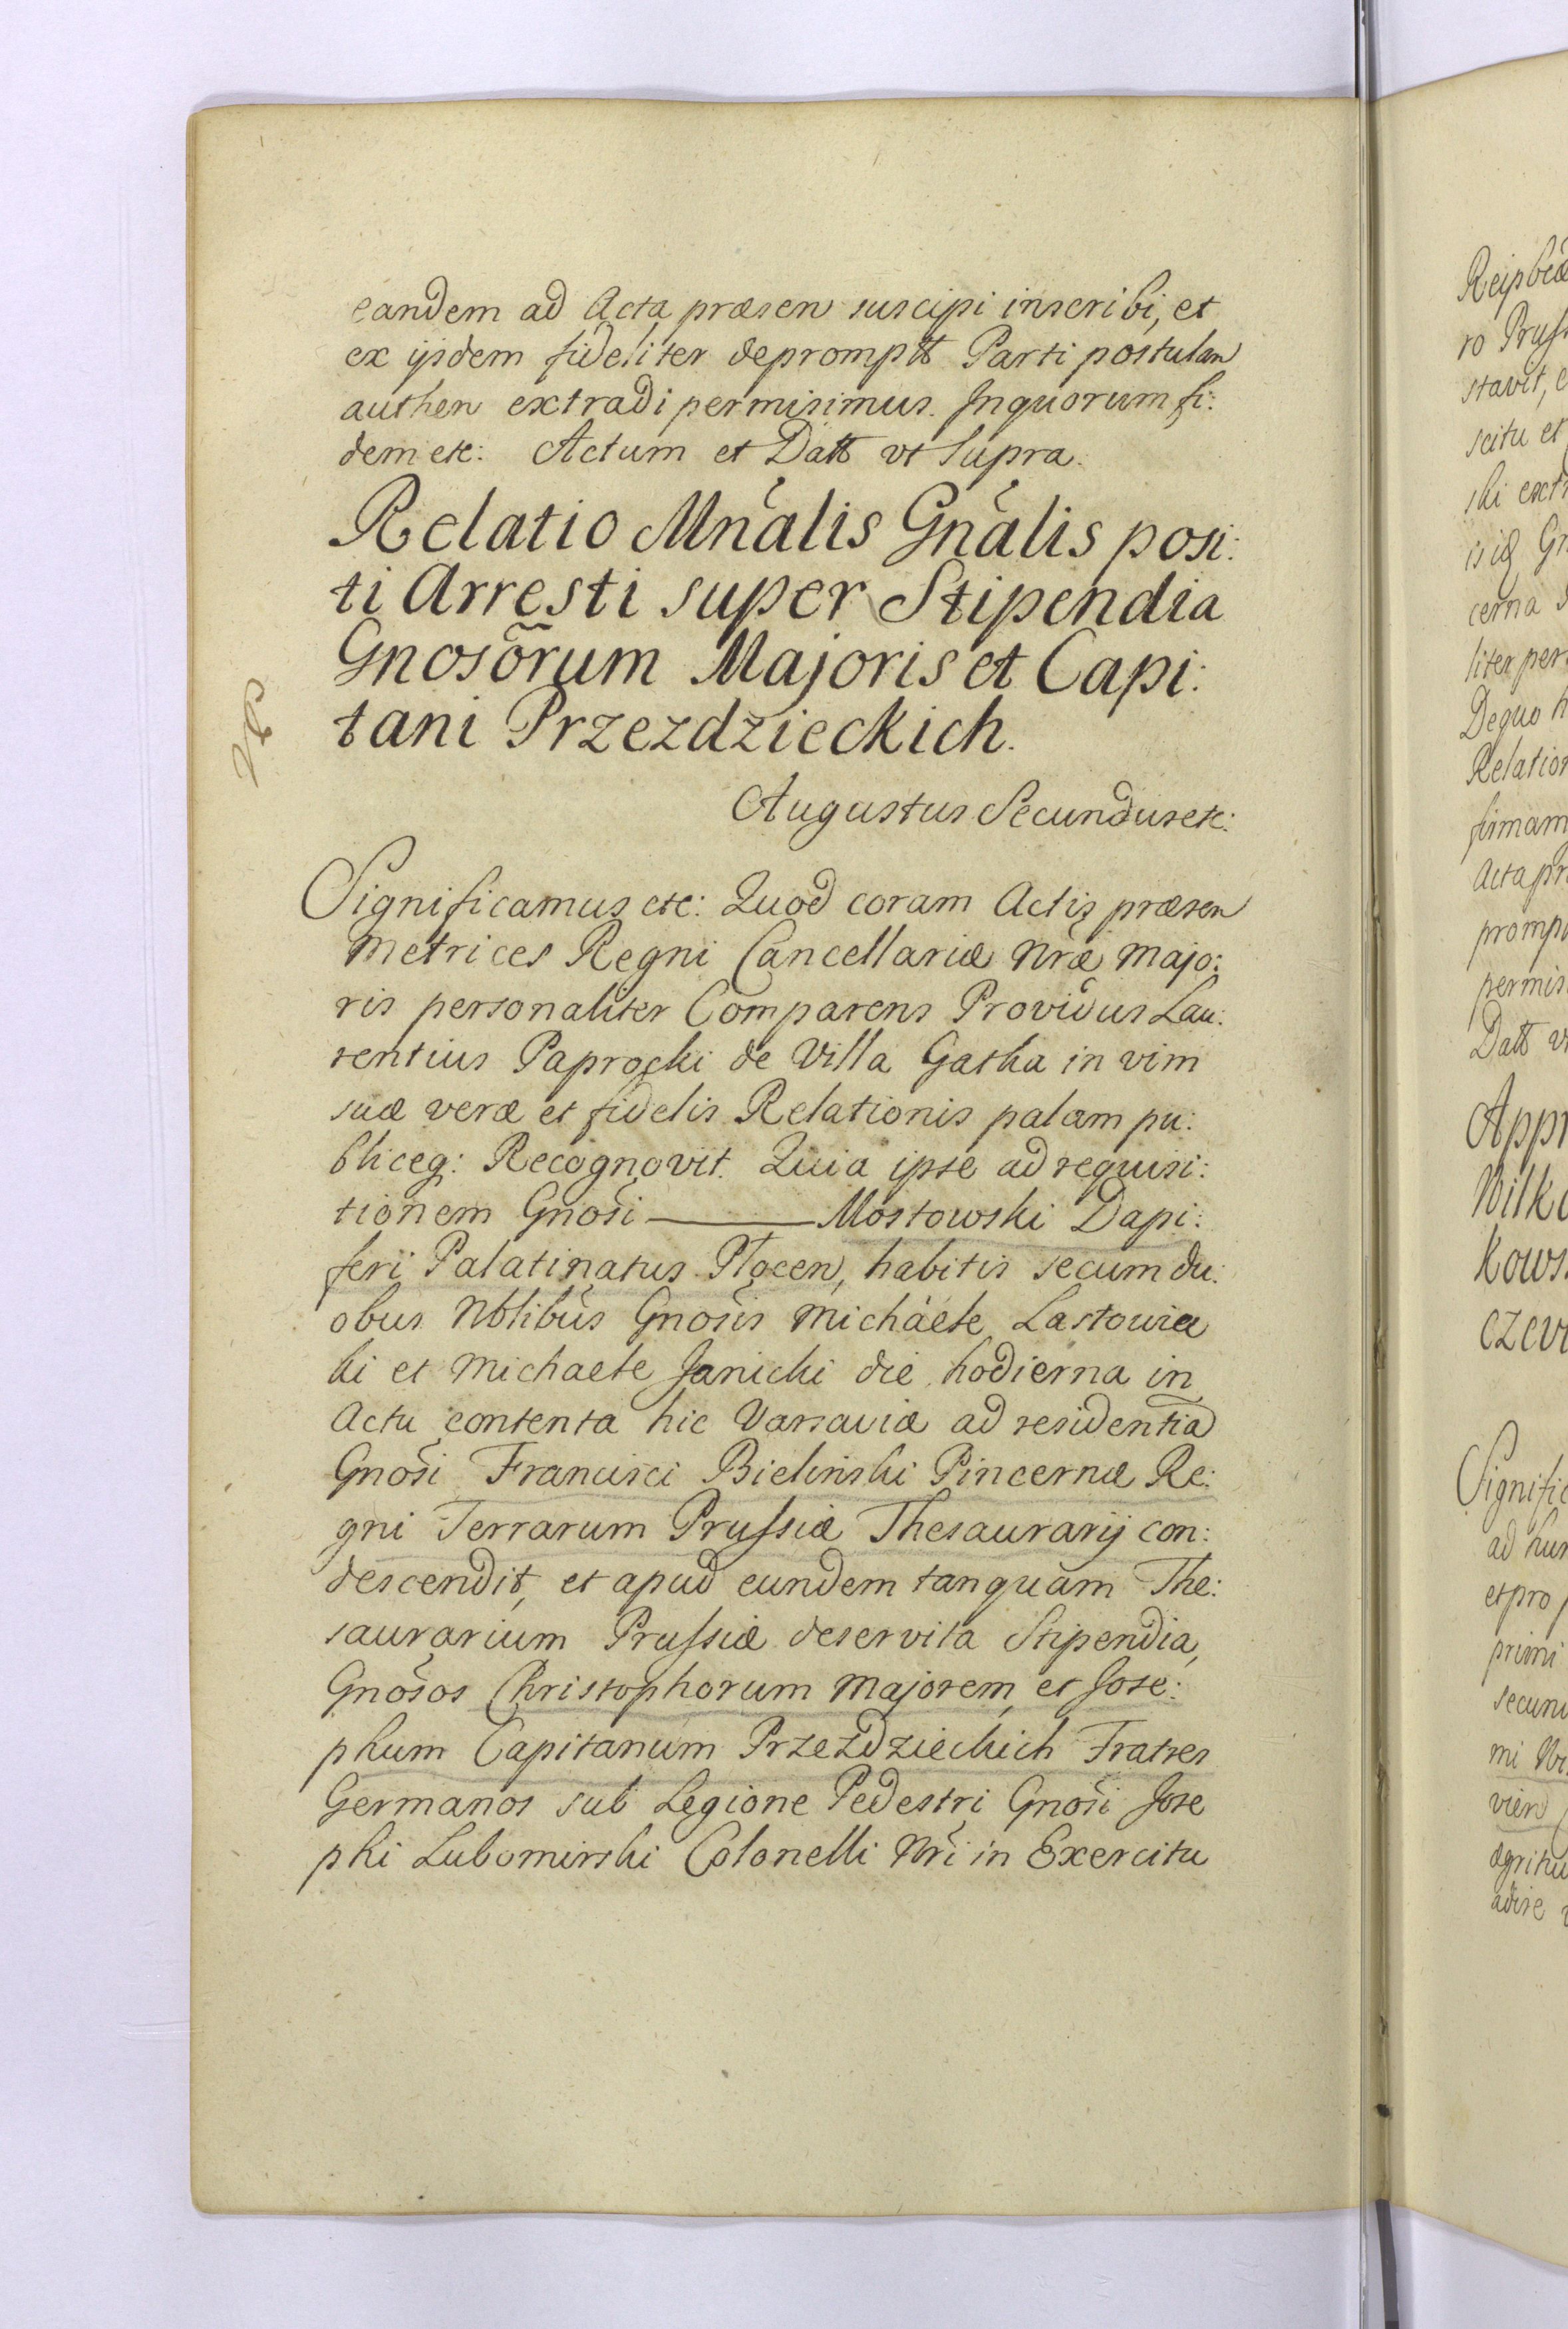 eandem ad Acta præsen suscipi inscribi, et
ex ijsdem fideliter deprompt Parti postulan
authen extradi permisimus. Inquorum fi:
dem etc: Actum et Datt vt supra.
Relatio Mnális Gnális posi:
ti Arresti super Stipendia
Gnosõrum Majoris et Capi:
tani Przezdzieckich.
Augustus Secundus etc:
Significamus etc: Quod coram Actis præsen
Metrices Regni Cancellariæ Nræ Majo:
ris personaliter Comparens Providus Lau:
rentius Paprocki de Villa Gatka in vim
suæ veræ et fidelis Relationis palam pu:
bliceq: Recognovit. Quia ipse ad requisi:
tionem Gnosi ——— Mostowski Dapi:
feri Palatinatus Płocen, habitis secum du:
obus Nblibus Gnosis Michaele Lastowie
ki et Michaele Janicki die hodierna in
Actu contenta hic Varsaviæ ad residentia
Gnosi Francisci Bielinski Pincernæ Re:
gni Terrarum Prussiæ Thesaurarij con:
descendit, et apud eundem tanquam The:
saurarium Prussiæ deservita Stipendia,
Gnosos Christophorum Majorem, et Jose:
phum Capitanum Przezdzieckich Fratres
Germanos sub Legione Pedestri Gnosi Jose
phi Lubomirski Colonelli Nri in Exercitu